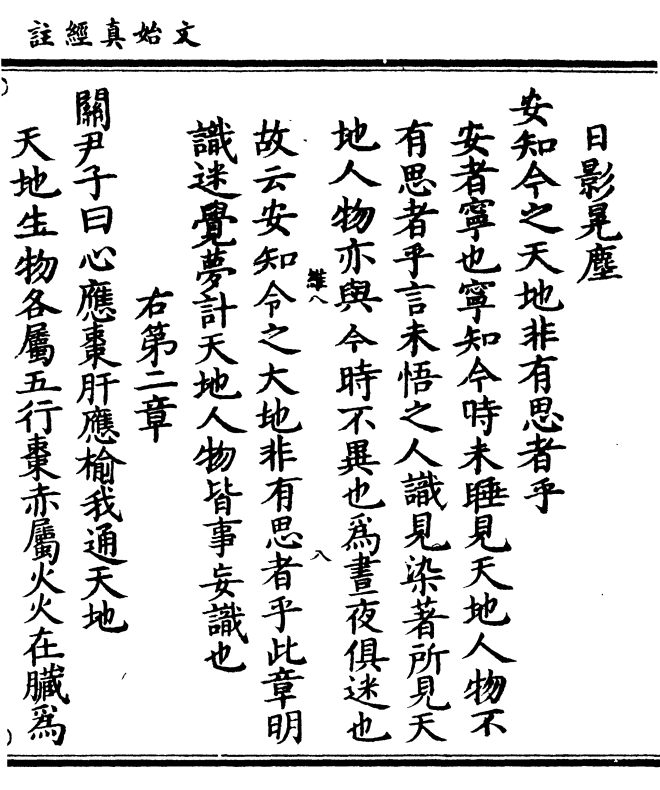 文始真經註
日影晃塵
安知今之天地非有思者乎
安者寧也寧知今時未睡見天地人物不
有思者乎言未悟之人識見染著所見天
地人物亦與今時不異也爲晝夜俱迷也
維八
八
故云安知今之大地非有思者乎此章明
識迷覺夢計天地人物皆事妄識也
右第二章
關尹子曰心應棗肝應榆我通天地
天地生物各屬五行棗赤屬火火在臟爲